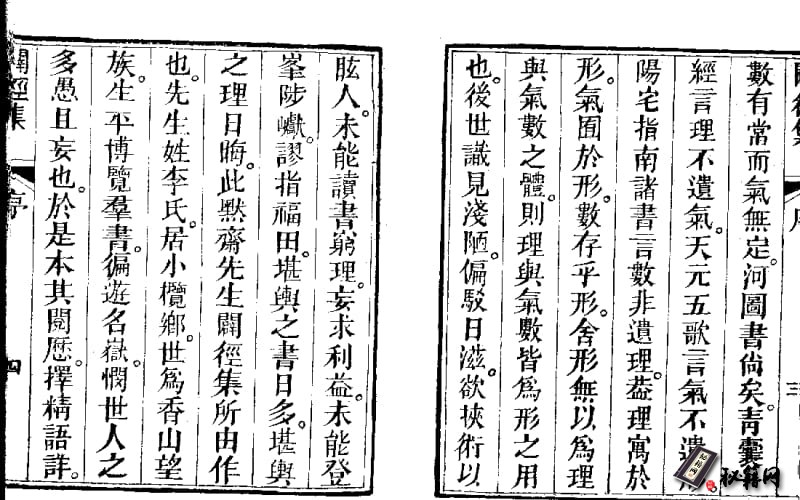 數有常而氣無定。河圖書尙矣。青囊
經言理不遺氣。天元五歌言氣不遺
陽宅指南諸書言數非遺理。葢理寓於
形。氣囿於形。數存乎形。舍形無以爲理
與氣數之體。則理與氣數皆爲形之用
也。後世識見淺陋。偏駁日滋。欲挾術以
眩人。未能讀書窮理。妄求利益。未能登
峯陟巘。謬指福田。堪輿之書日多。堪輿
之理日晦。此默齋先生闢徑集所由作
也。先生姓李氏。居小欖鄉。世爲香山望
族。生平博覽羣書。徧遊名嶽。憫世人之
多愚且妄也。於是本其閱歷。擇精語詳。
闢徑集
四
秘籍网